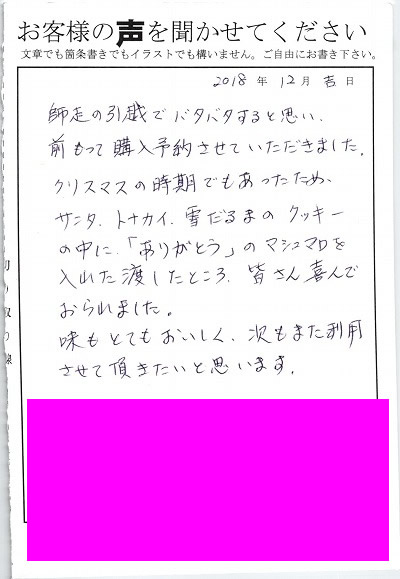 お客様の声を聞かせてください
文章でも箇条書きでもイラストでも構いません。ご自由にお書き下さい。
2018年 12月 吉日
師走の引越でバタバタすると思い、
前もって購入予約させていただきました。
クリスマスの時期でもあったため、
サンタ、トナカイ、雪だるまのクッキー
の中に、「ありがとう」のマシュマロを
入れた渡したところ、皆さん喜んで
おられました。
味もとてもおいしく、次もまた利用
させて頂きたいと思います。
切り取り線